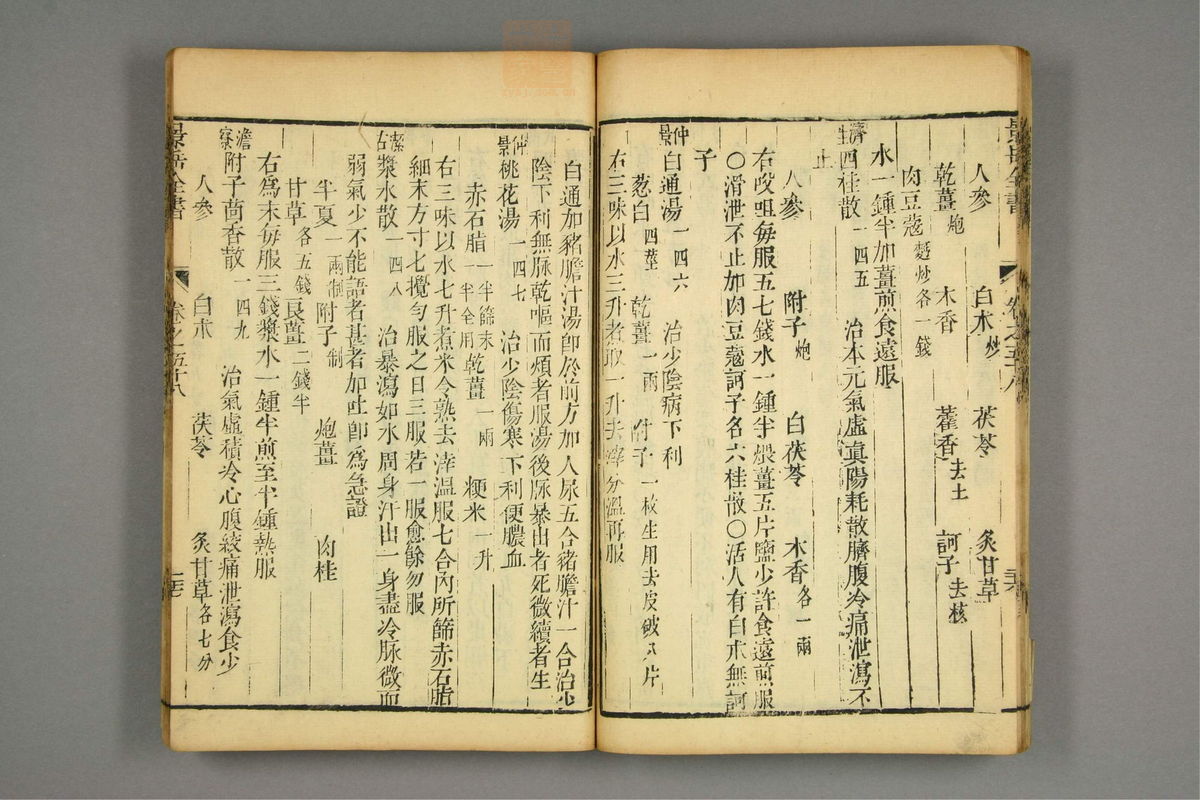 人參 白朮炒 茯苓 炙甘草
乾薑炮 木香 藿香去土 訶子去核
肉豆蔻麪炒各一錢
水一鍾半加薑煎食遠服
濟生四桂散一四五 治本元氣虛眞陽耗散臍腹冷痛泄瀉不
止
人參 附子炮 白茯苓 木香各一兩
右㕮咀每服五七錢水一鍾半煨薑五片鹽少許食遠煎服
○滑泄不止加肉豆蔻訶子名六桂散○活人有白朮無訶
子
仲景白通湯一四六 治少陰病下利
葱白四莖 乾薑一兩 附子一枚生用去皮破八片
右三味以水三升煮取一升去滓分溫再服
白通加豬膽汁湯卽於前方加人尿五合豬膽汁一合治少
陰下利無脉乾嘔而煩者服湯後脉暴出者死微續者生
仲景桃花湯一四七 治少陰傷寒下利便膿血
赤石脂一半篩末一半全用 乾薑一兩 粳米一升
右三味以水七升煮米令熟去滓溫服七合內所篩赤石脂
細末方寸七攪勻服之日三服若一服愈餘勿服
潔古漿水散一四八 治暴瀉如水周身汗出一身盡冷脉微而
弱氣少不能語者甚者加吐卽爲急證
半夏一兩制 附子制 炮薑 肉桂
甘草各五錢 良薑二錢半
右爲末每服三錢漿水一鍾半煎至半鍾熱服
澹寮附子茴香散一四九 治氣虛積冷心腹絞痛泄瀉食少
人參 白朮 茯苓 炙甘草各七分
景岳全書 卷之五十八